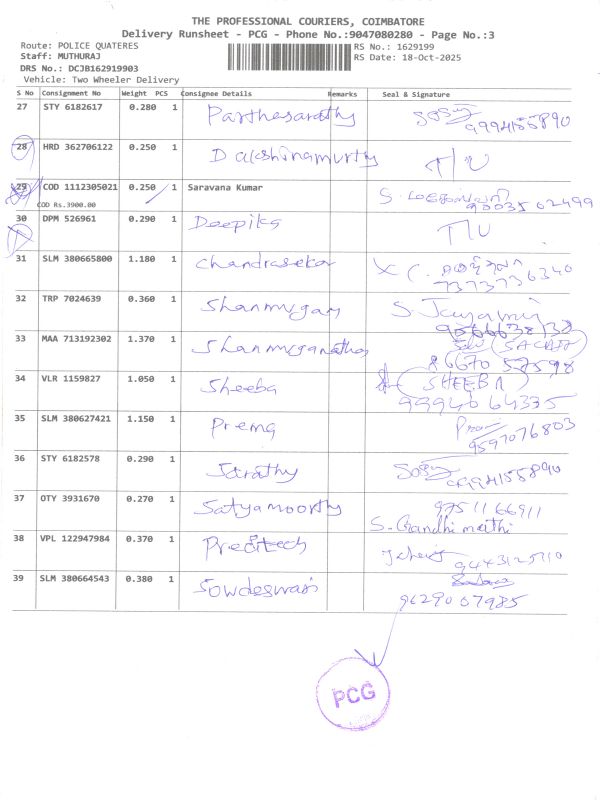 THE PROFESSIONAL COURIERS, COIMBATORE
Delivery Runsheet - PCG - Phone No.:9047080280 - Page No.:3
Route: POLICE QUATERES
RS No.: 1629199
Staff: MUTHURAJ
RS Date: 18-Oct-2025
DRS No.: DCJB162919903
Vehicle: Two Wheeler Delivery
S No Consignment No Weight PCS Consignee Details Remarks Seal & Signature
27 STY 6182617 0.280 1 Parthesarathy
9994155890
28 HRD 362706122 0.250 1 Dakshinamurthy
29 COD 1112305021 0.250 1 Saravana Kumar
COD Rs.3900.00
30 DPM 526961 0.290 1 Deepika
31 SLM 380665800 1.180 1 Chandrasekar
7373736340
32 TRP 7024639 0.360 1 Shanmugam
33 MAA 713192302 1.370 1 Shanmuganathan
86670 57598
34 VLR 1159827 1.050 1 Sheeba (SHEEBA)
99940 64335
35 SLM 380627421 1.150 1 Prema
9597076803
36 STY 6182578 0.290 1 Sarathy
9994155890
37 OTY 3931670 0.270 1 Satyamoorthy 97511 66911
S. Gandhimathi
38 VPL 122947984 0.370 1
9443125710
39 SLM 380664543 0.380 1 Sowdeswari
9629007985
PCG